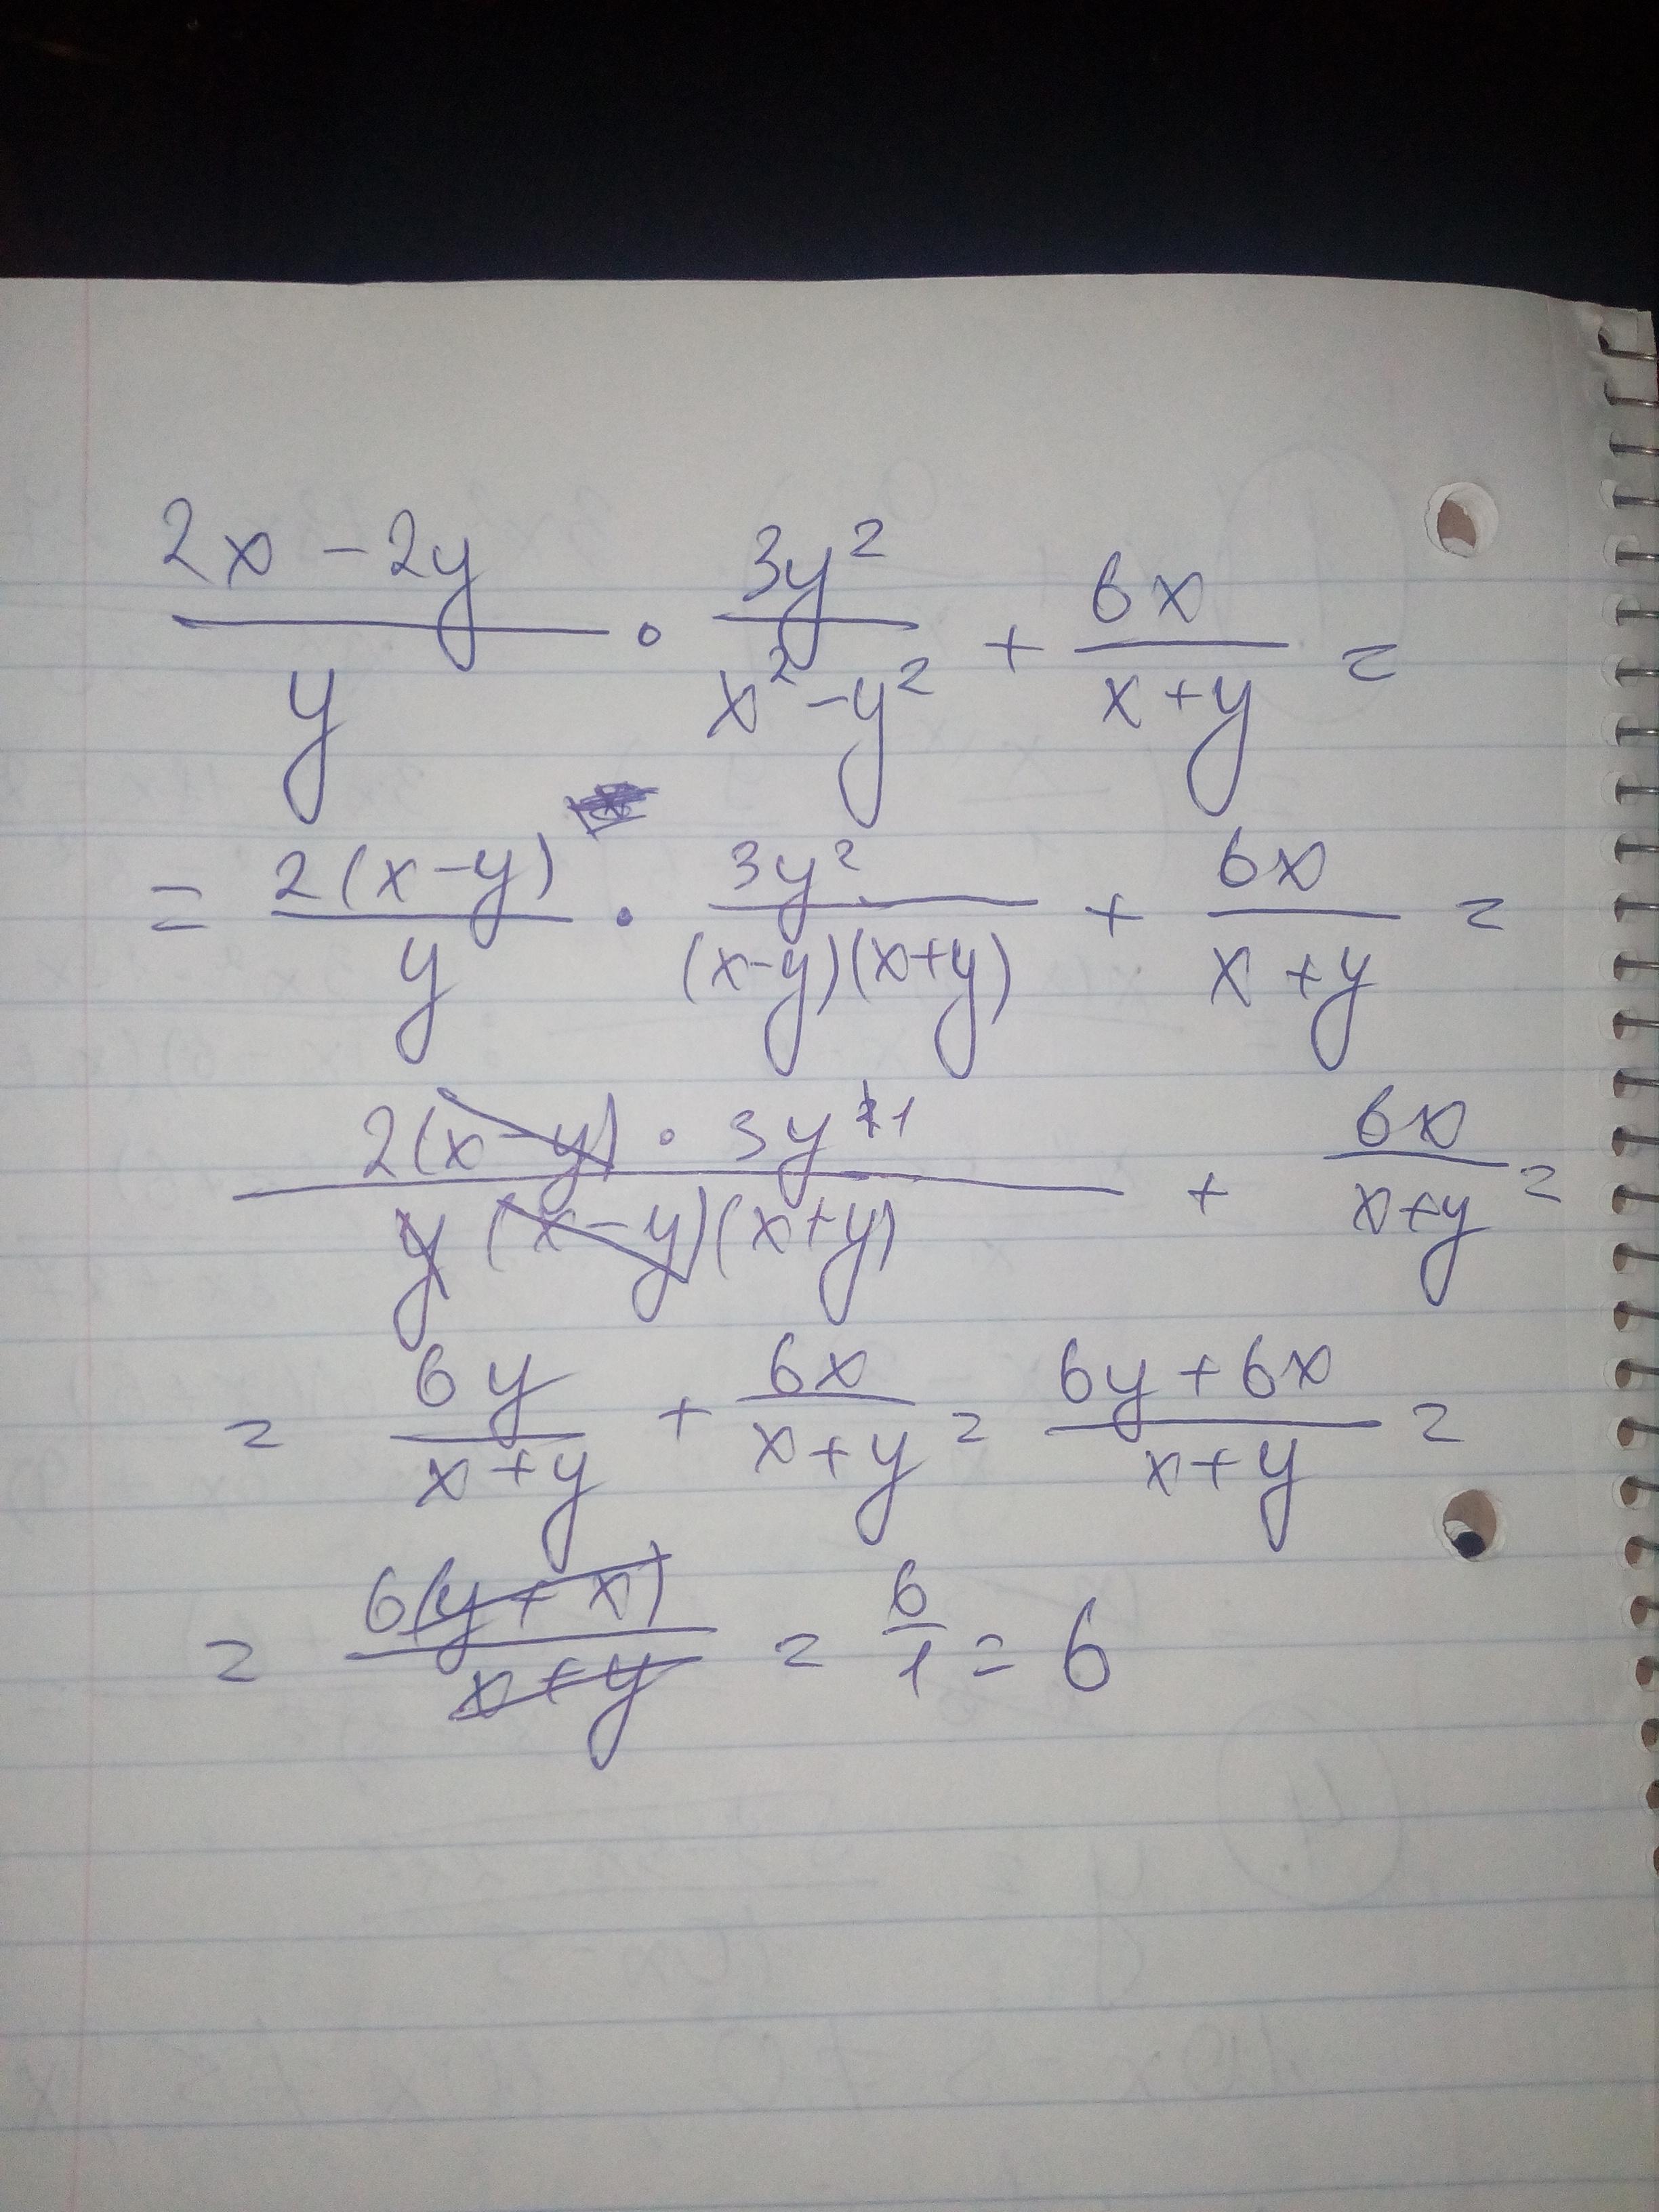 (2x - 2y)/y · 3y²/(x² - y²) + 6x/(x+y) =
= 2(x-y)/y · 3y²/((x-y)(x+y)) + 6x/(x+y) =
(2(x-y) · 3y¹)/(y(x-y)(x+y)) + 6x/(x+y) =
= 6y/(x+y) + 6x/(x+y) = (6y+6x)/(x+y) =
= 6(y+x)/(x+y) = 6/1 = 6